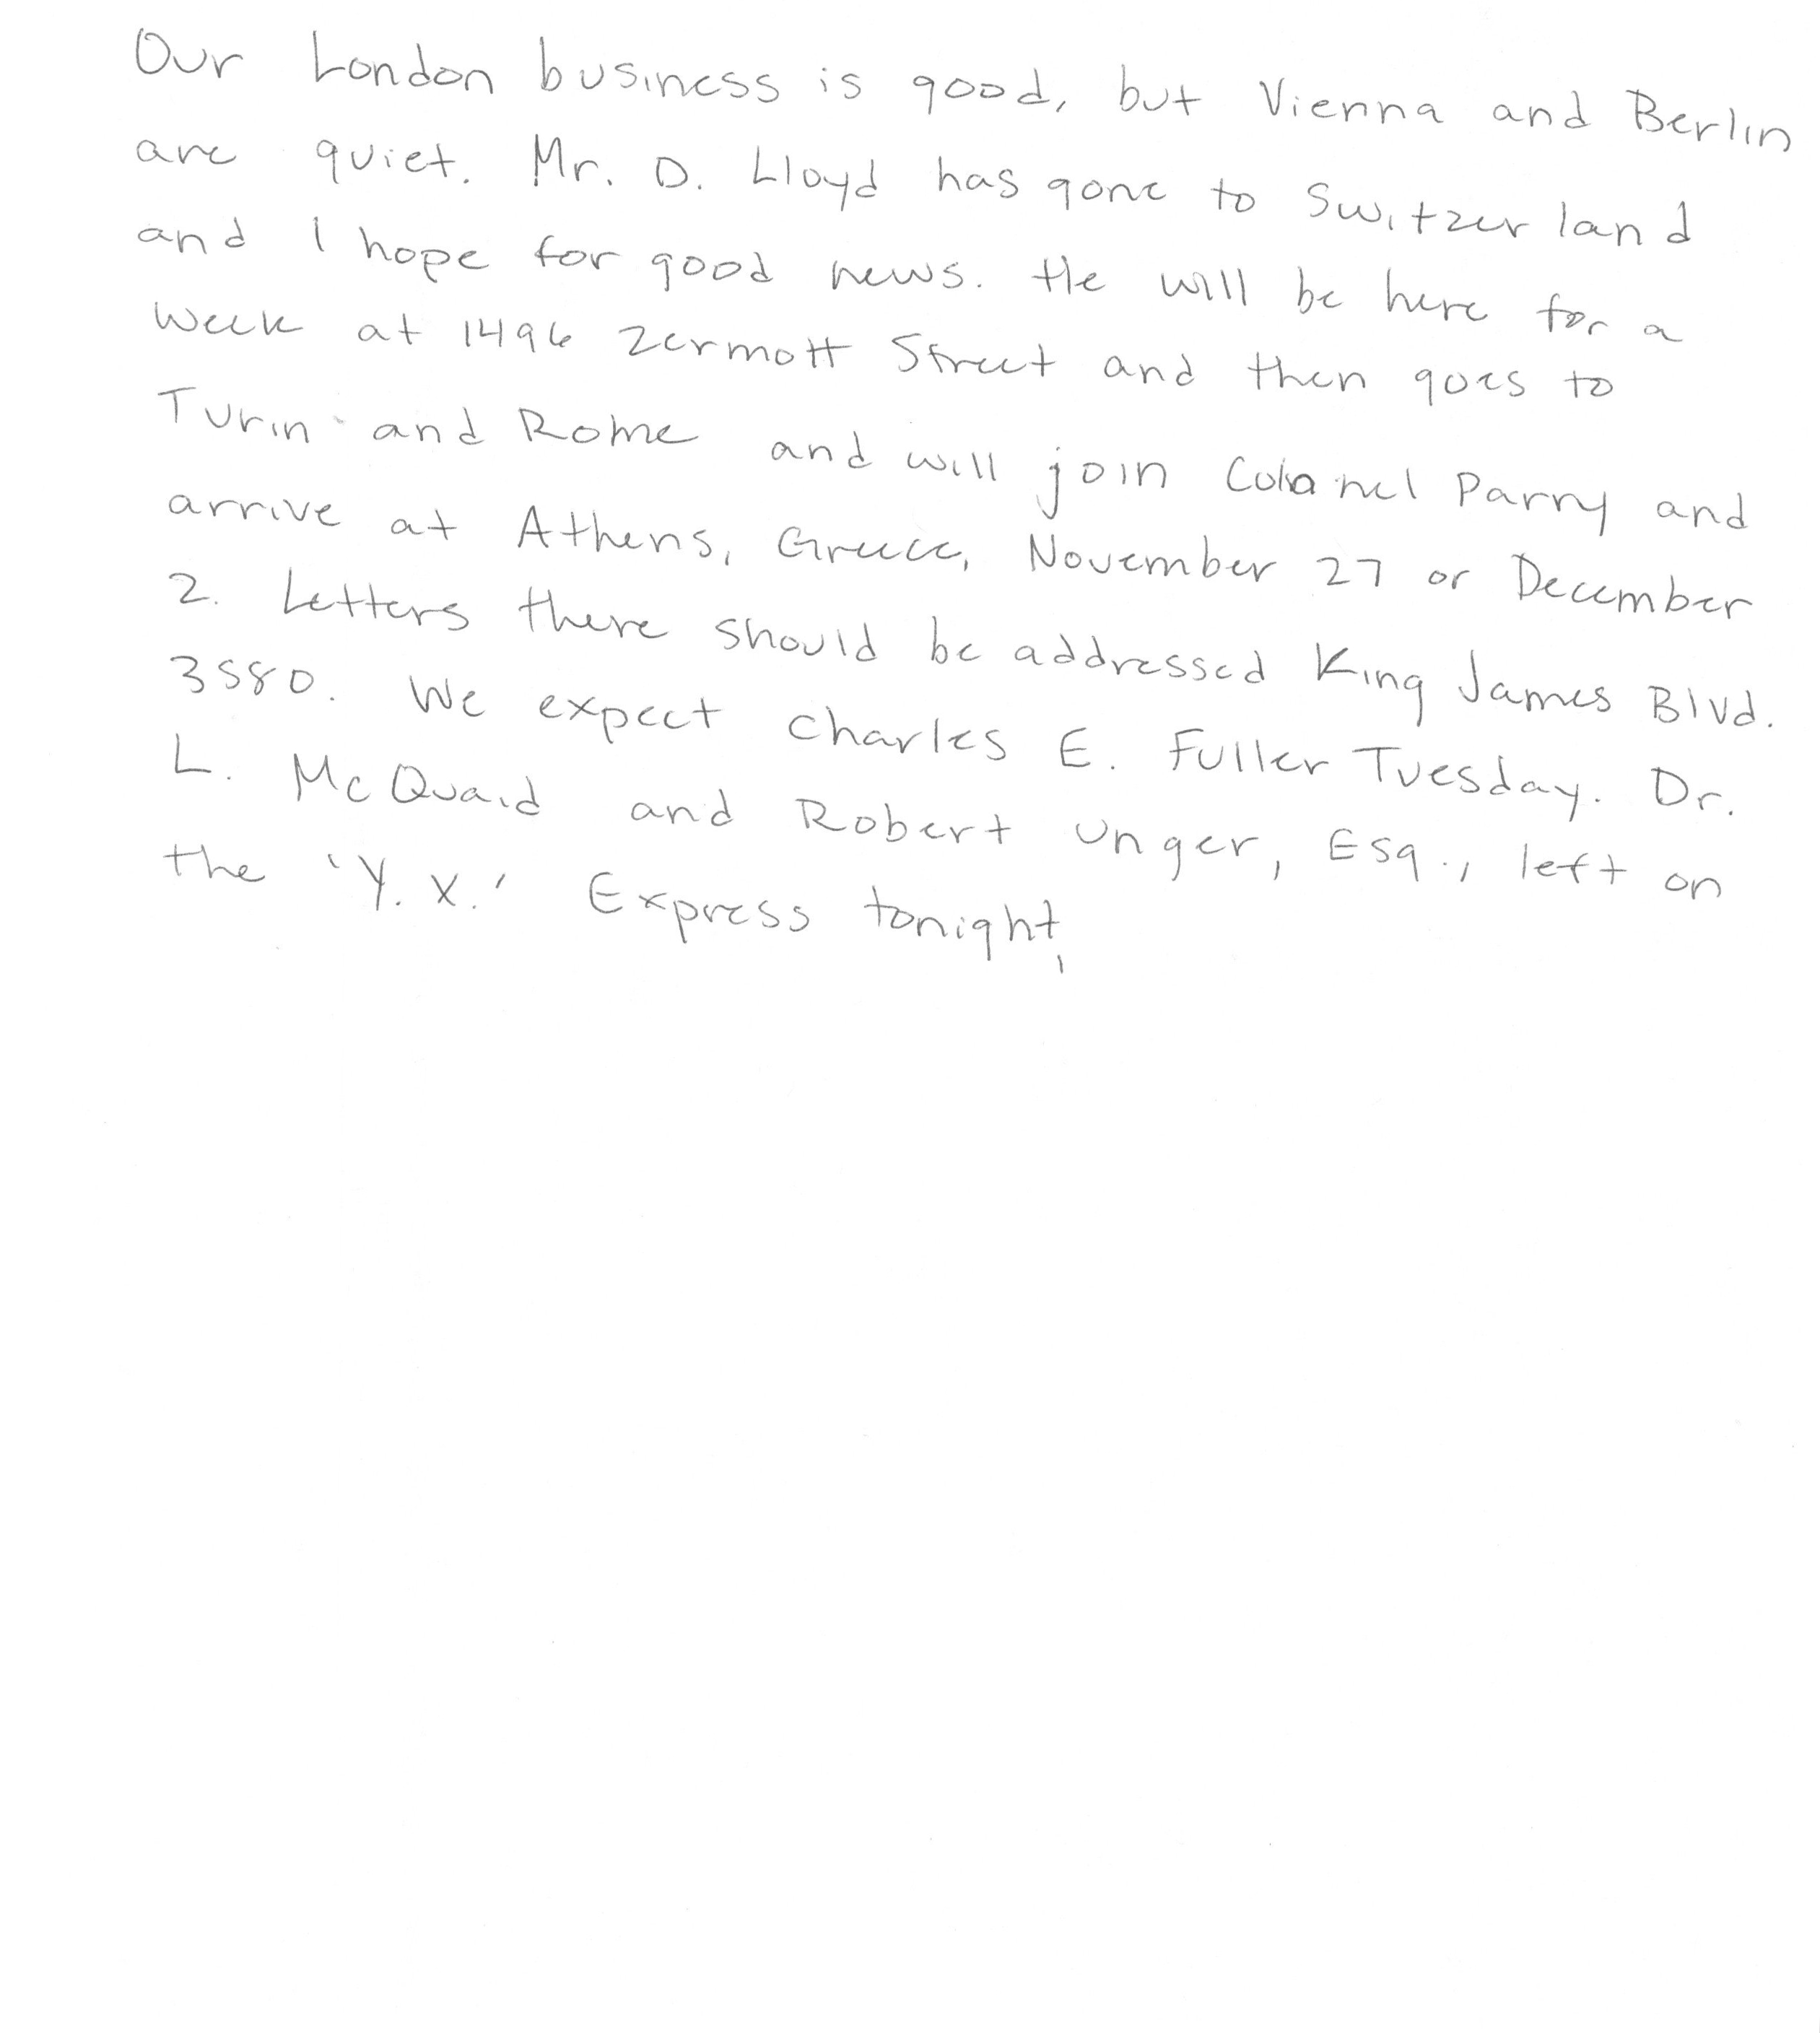 Our London business is good, but Vienna and Berlin
are quiet. Mr. D. Lloyd has gone to Switzerland
and I hope for good news. He will be here for a
week at 1496 Zermott Street and then goes to
Turin and Rome and will join Colonel Parry and
arrive at Athens, Greece, November 27 or December
2. Letters there should be addressed King James Blvd.
3580. We expect Charles E. Fuller Tuesday. Dr.
L. McQuaid and Robert Unger, Esq., left on
the 'Y.X.' Express tonight,